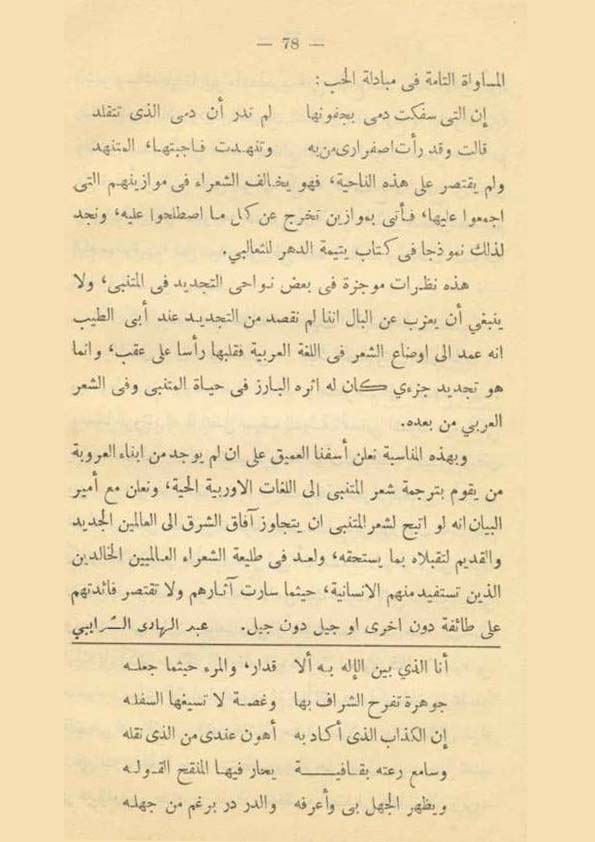 — 78 —
المساواة التامة فى مبادلة الحب :
إن التى سفكت دمى بجفونها لم تدر أن دمى الذى تتقلد
قالت وقد رأت اصفرارى من به وتنهدت فاجبتها، المتنهد
ولم يقتصر على هذه الناحية، فهو يخالف الشعراء فى موازينهم التى
اجمعوا عليها، فأتى بموازين تخرج عن كل ما اصطلحوا عليه، ونجد
لذلك نموذجا فى كتاب يتيمة الدهر للثعالبي.
هذه نظرات موجزة فى بعض نواحى التجديد فى المتنبى، ولا
ينبغي أن يعزب عن البال اننا لم نقصد من التجديد عند أبى الطيب
انه عمد الى اوضاع الشعر فى اللغة العربية فقلبها رأسا على عقب، وانما
هو تجديد جزءي كان له اثره البارز فى حياة المتنبى وفى الشعر
العربي من بعده.
وبهذه المناسبة نعلن أسفنا العميق على ان لم يوجد من ابناء العروبة
من يقوم بترجمة شعر المتنبى إلى اللغات الاوربية الحية، ونعلن مع أمير
البيان انه لو اتيح لشعر المتنبى ان يتجاوز آفاق الشرق الى العالمين الجديد
والقديم لتقبلاه بما يستحقه، ولعد فى طليعة الشعراء العالميين الخالدين
الذين تستفيد منهم الانسانية، حيثما سارت آثارهم ولا تقتصر فائدتهم
على طائفة دون اخرى او جيل دون جيل. عبد الهادى الشرايبي
أنا الذي بين الإله به ألا قدار، والمرء حيثما جعله
جوهرة تفرح الشراف بها وغصة لا تسيغها السفله
إن الكذاب الذى أكاد به أهون عندى من الذى نقله
وسامع رعته بقافيـة يحار فيها المنقح القوله
ويظهر الجهل بى وأعرفه والدر در برغم من جهله